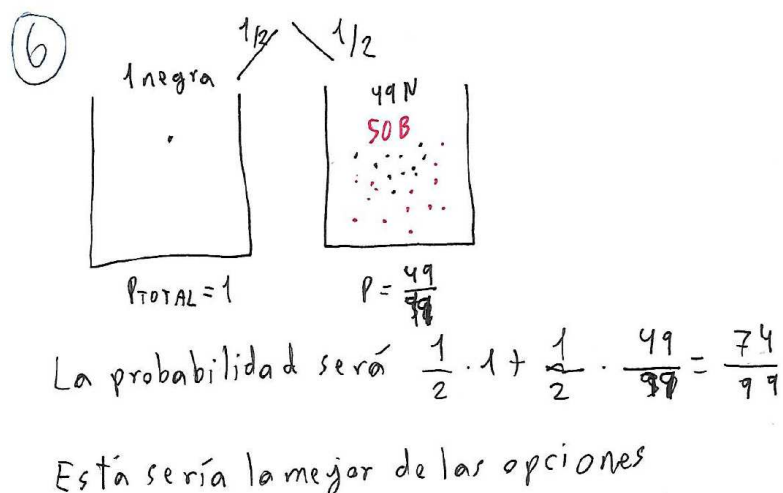 6
1/2 1/2
1 negra
49N
50B
PTOTAL = 1
P = 49/99
La probabilidad será 1/2 · 1 + 1/2 · 49/99 = 74/99
Está sería la mejor de las opciones